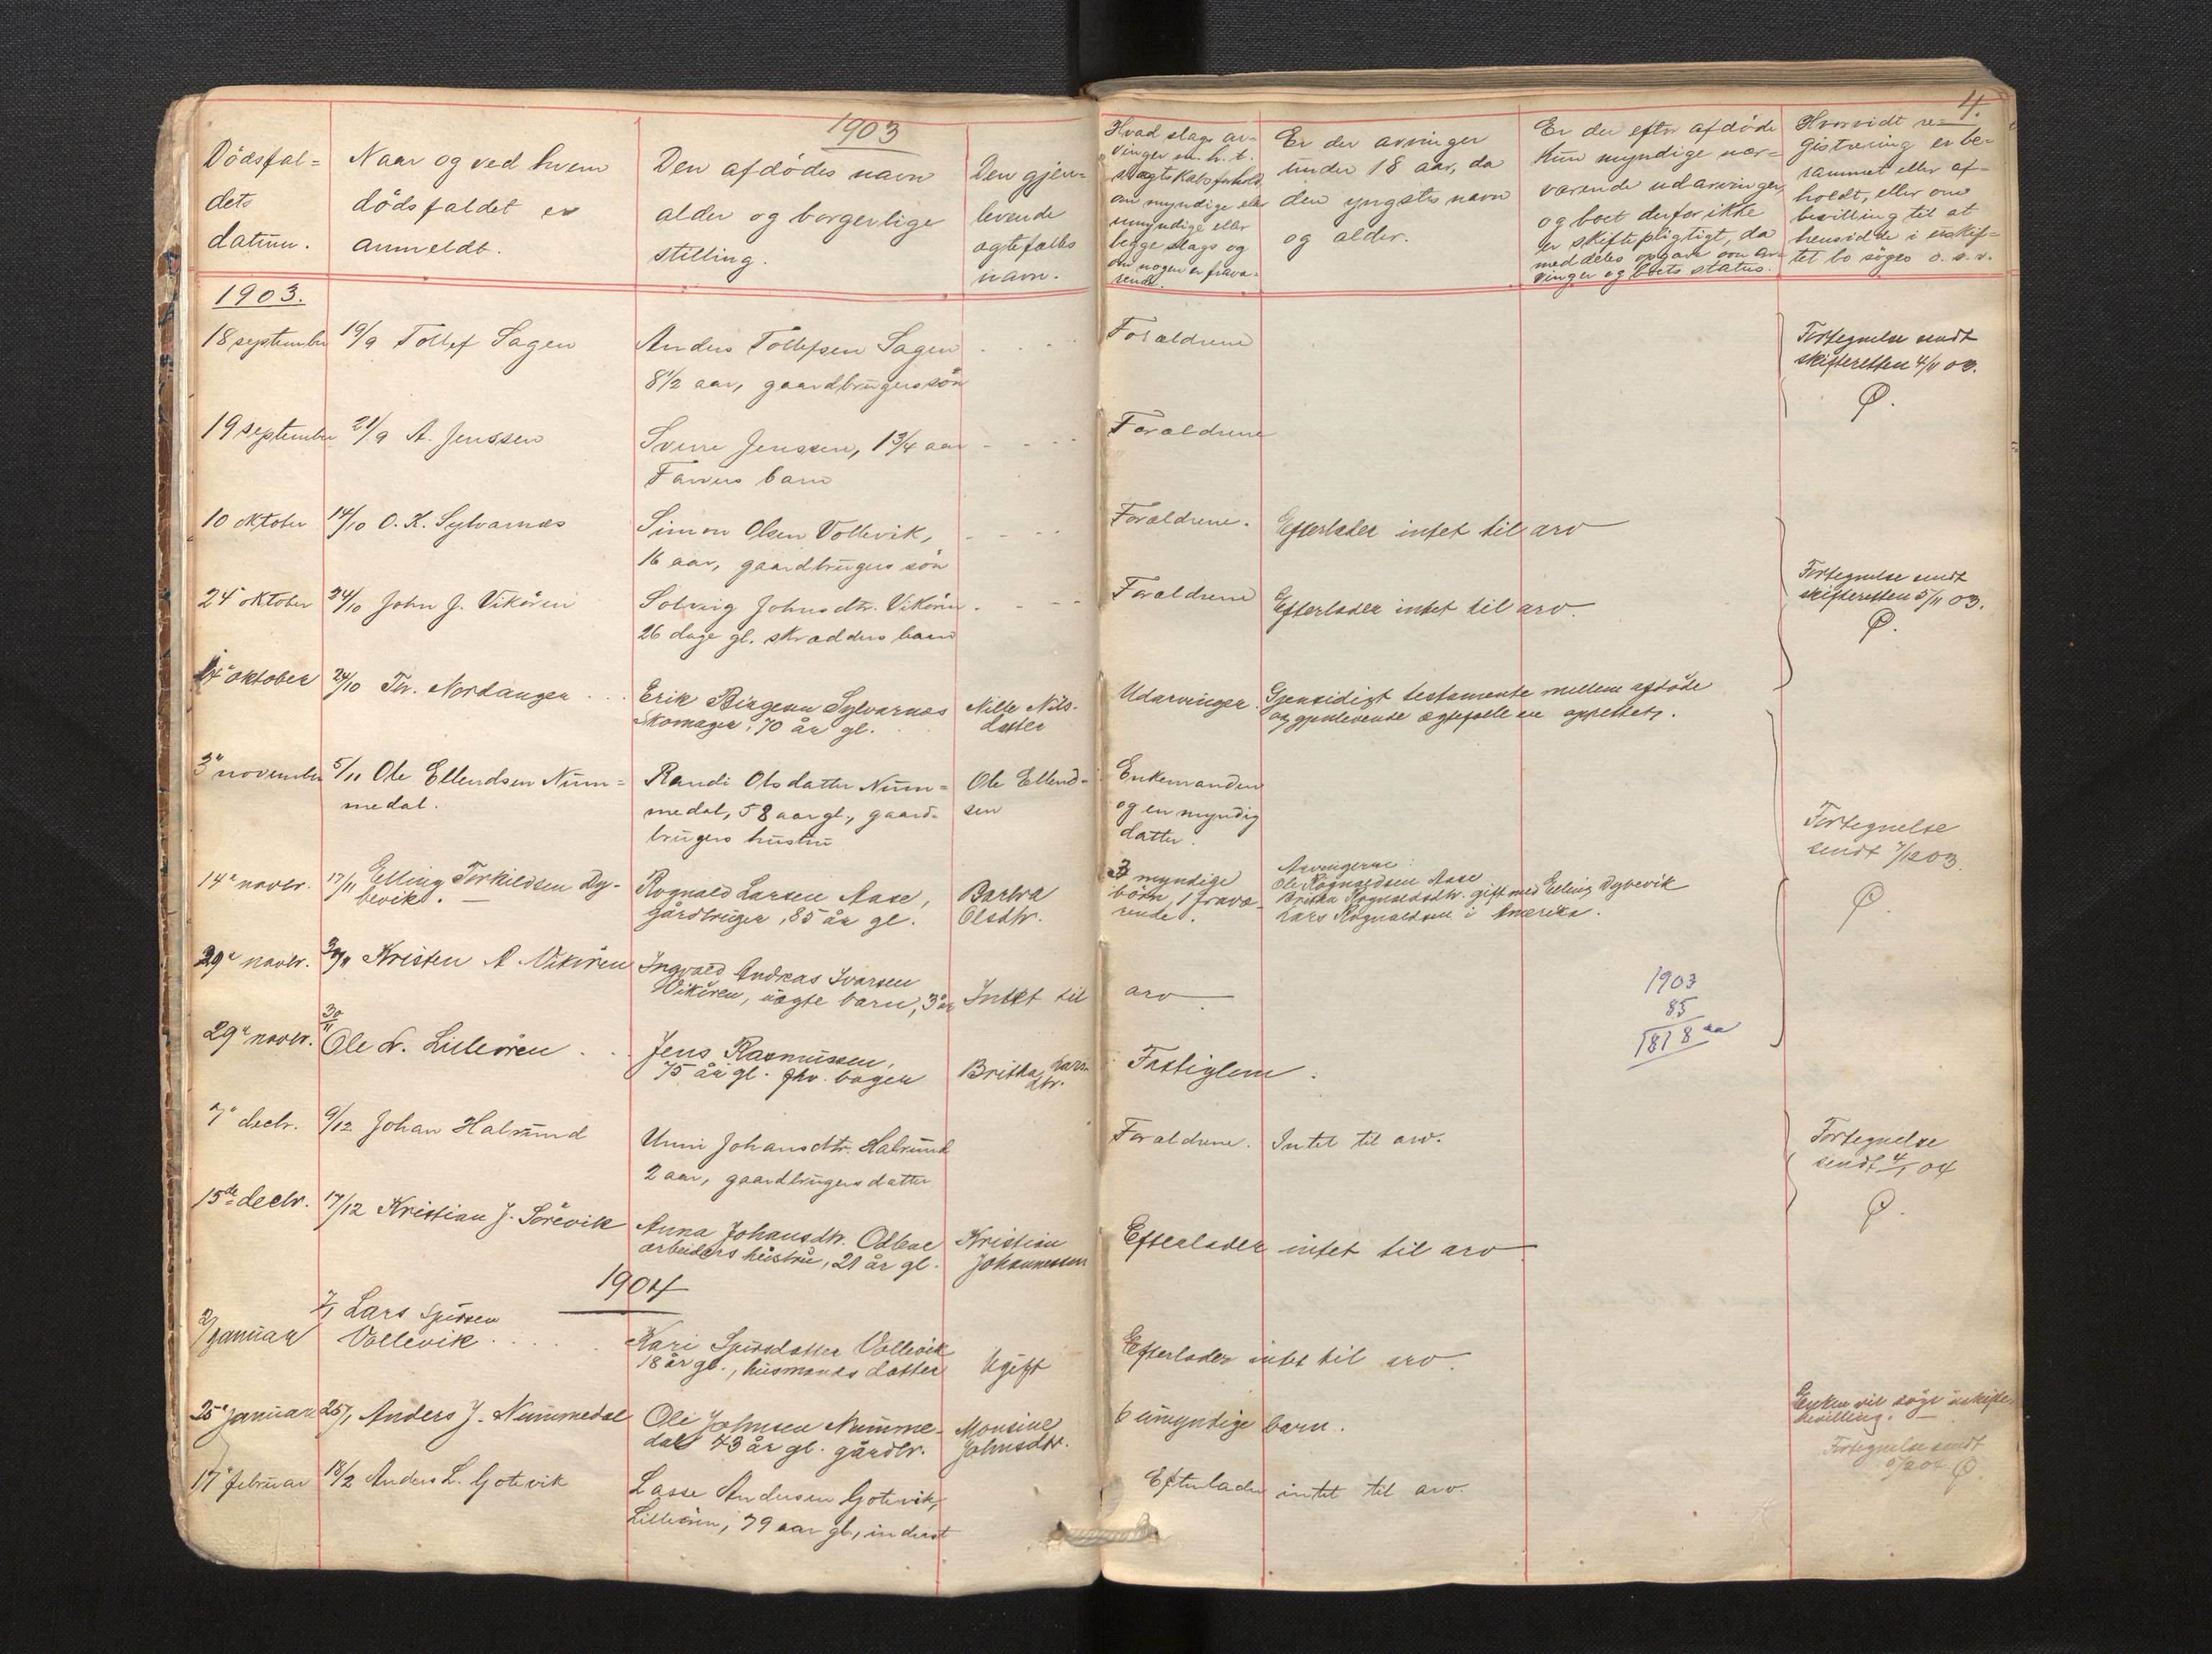 1903
4.
Dödsfal=
dets
datum.
Naar og ved hvem
dödsfaldet er
anmeldt.
Den afdödes navn
alder og borgerlige
stilling.
Den gjen=
levende
ægtefælles
navn.
Hvad slags ar=
vinger m. h. t.
slægtskabsforhold
om myndige eller
umyndige eller
begge slags og
om nogen er fravæ=
rende.
Er der arvinger
under 18 aar, da
den yngstes navn
og alder.
Er der efter afdöde
kun myndige nær=
værende udarvinger,
og boet derfor ikke
er skiftepligtigt, da
meddeles opgave om ar=
vinger og boets status.
Hvorvidt re=
gistrering er be=
rammet eller af=
holdt, eller om
bevilling til at
hensidde i uskif=
tet bo söges o. s. v.
1903.
18 september 19/9 Tollef Sagen
Anders Tollefsen Sagen
8 1/2 aar, gaardbrugers sön
Forældrene
Fortegnelse sendt
skifteretten 4/11 03.
19 september 21/9 A. Jenssen
Sverre Jenssen, 1 3/4 aar
Farvers barn
Forældrene
10 oktober 14/10 O. K. Sylvarnæs
Simon Olsen Vollevik,
16 aar, gaardbrugers sön
Forældrene. Efterlader intet til arv
24 oktober 24/10 John J. Vikören
Solveig Johnsdtr. Vikören.
26 dage gl. skrædders barn
Forældrene Efterlader intet til arv.
Fortegnelse sendt
skifteretten 5/11 03.
oktober 24/10 Nordanger
Erik Birgesen Sylvarnæs
Skomager, 70 år gl.
Nille Nils-
datter
Udarvinger. Gjensidigt testamente mellem afdöde
og gjenlevende ægtefælle er oprettet.
3 november 5/11 Ole Ellendsen Num=
medal.
Randi Olsdatter Num=
medal, 58 aar gl., gaard-
brugers hustru
Ole Ellend=
sen
Enkemanden
og en myndig
datter.
Fortegnelse
sendt 7/12 03.
14 novbr. 17/11 Elling Torkildsen Dy-
bevik.
Rognald Larsen Aase,
gårdbruger, 85 år gl.
Barbra
Olsdtr.
3 myndige
börn, 1 fravæ-
rende.
Arvingerne:
Ole Rognaldsen Aase
Britha Rognaldsdtr. gift med Elling Dybevik
Lars Rognaldsen i Amerika.
29 novbr. 30/11 Kristen A. Vikören
Ingvald Andreas Ivarsen
Vikören, uægte barn, 3 år
Intet til arv
1903
85
1818
29 novbr. 30/11 Ole L. Lilleören
Jens Rasmussen,
75 år gl. fhv. bager
Britha Lars-
dtr.
Fattiglem.
7 decbr. 9/12 Johan Halsund
Unni Johansdtr. Halsund
2 aar, gaardbrugers datter
Forældrene. Intet til arv.
Fortegnelse
sendt 4/1 04
15de decbr. 17/12 Kristian J. Sörevik
Anna Johansdtr.
arbeiders hustru, 21 år gl.
Kristian
Johannessen
Efterlader intet til arv
1904
2/ januar 7/1 Lars Sjursen
Vollevik
Kari Sjursdatter Vollevik
18 år gl., husmands datter
Ugift
Efterlader intet til arv.
25 januar 25/1 Anders J. Nummedal
Ole Johnsen Numme-
dal 43 år gl. gårdbr.
Monsine
Johnsdtr.
6 umyndige barn.
Enken vil söge uskifte-
bevilling.
Fortegnelse sendt
17 februar 18/2 Anders L. Gotevik
Lasse Andersen Gotevik,
Lilleören, 79 aar gl., inderst
Efterlader intet til arv.